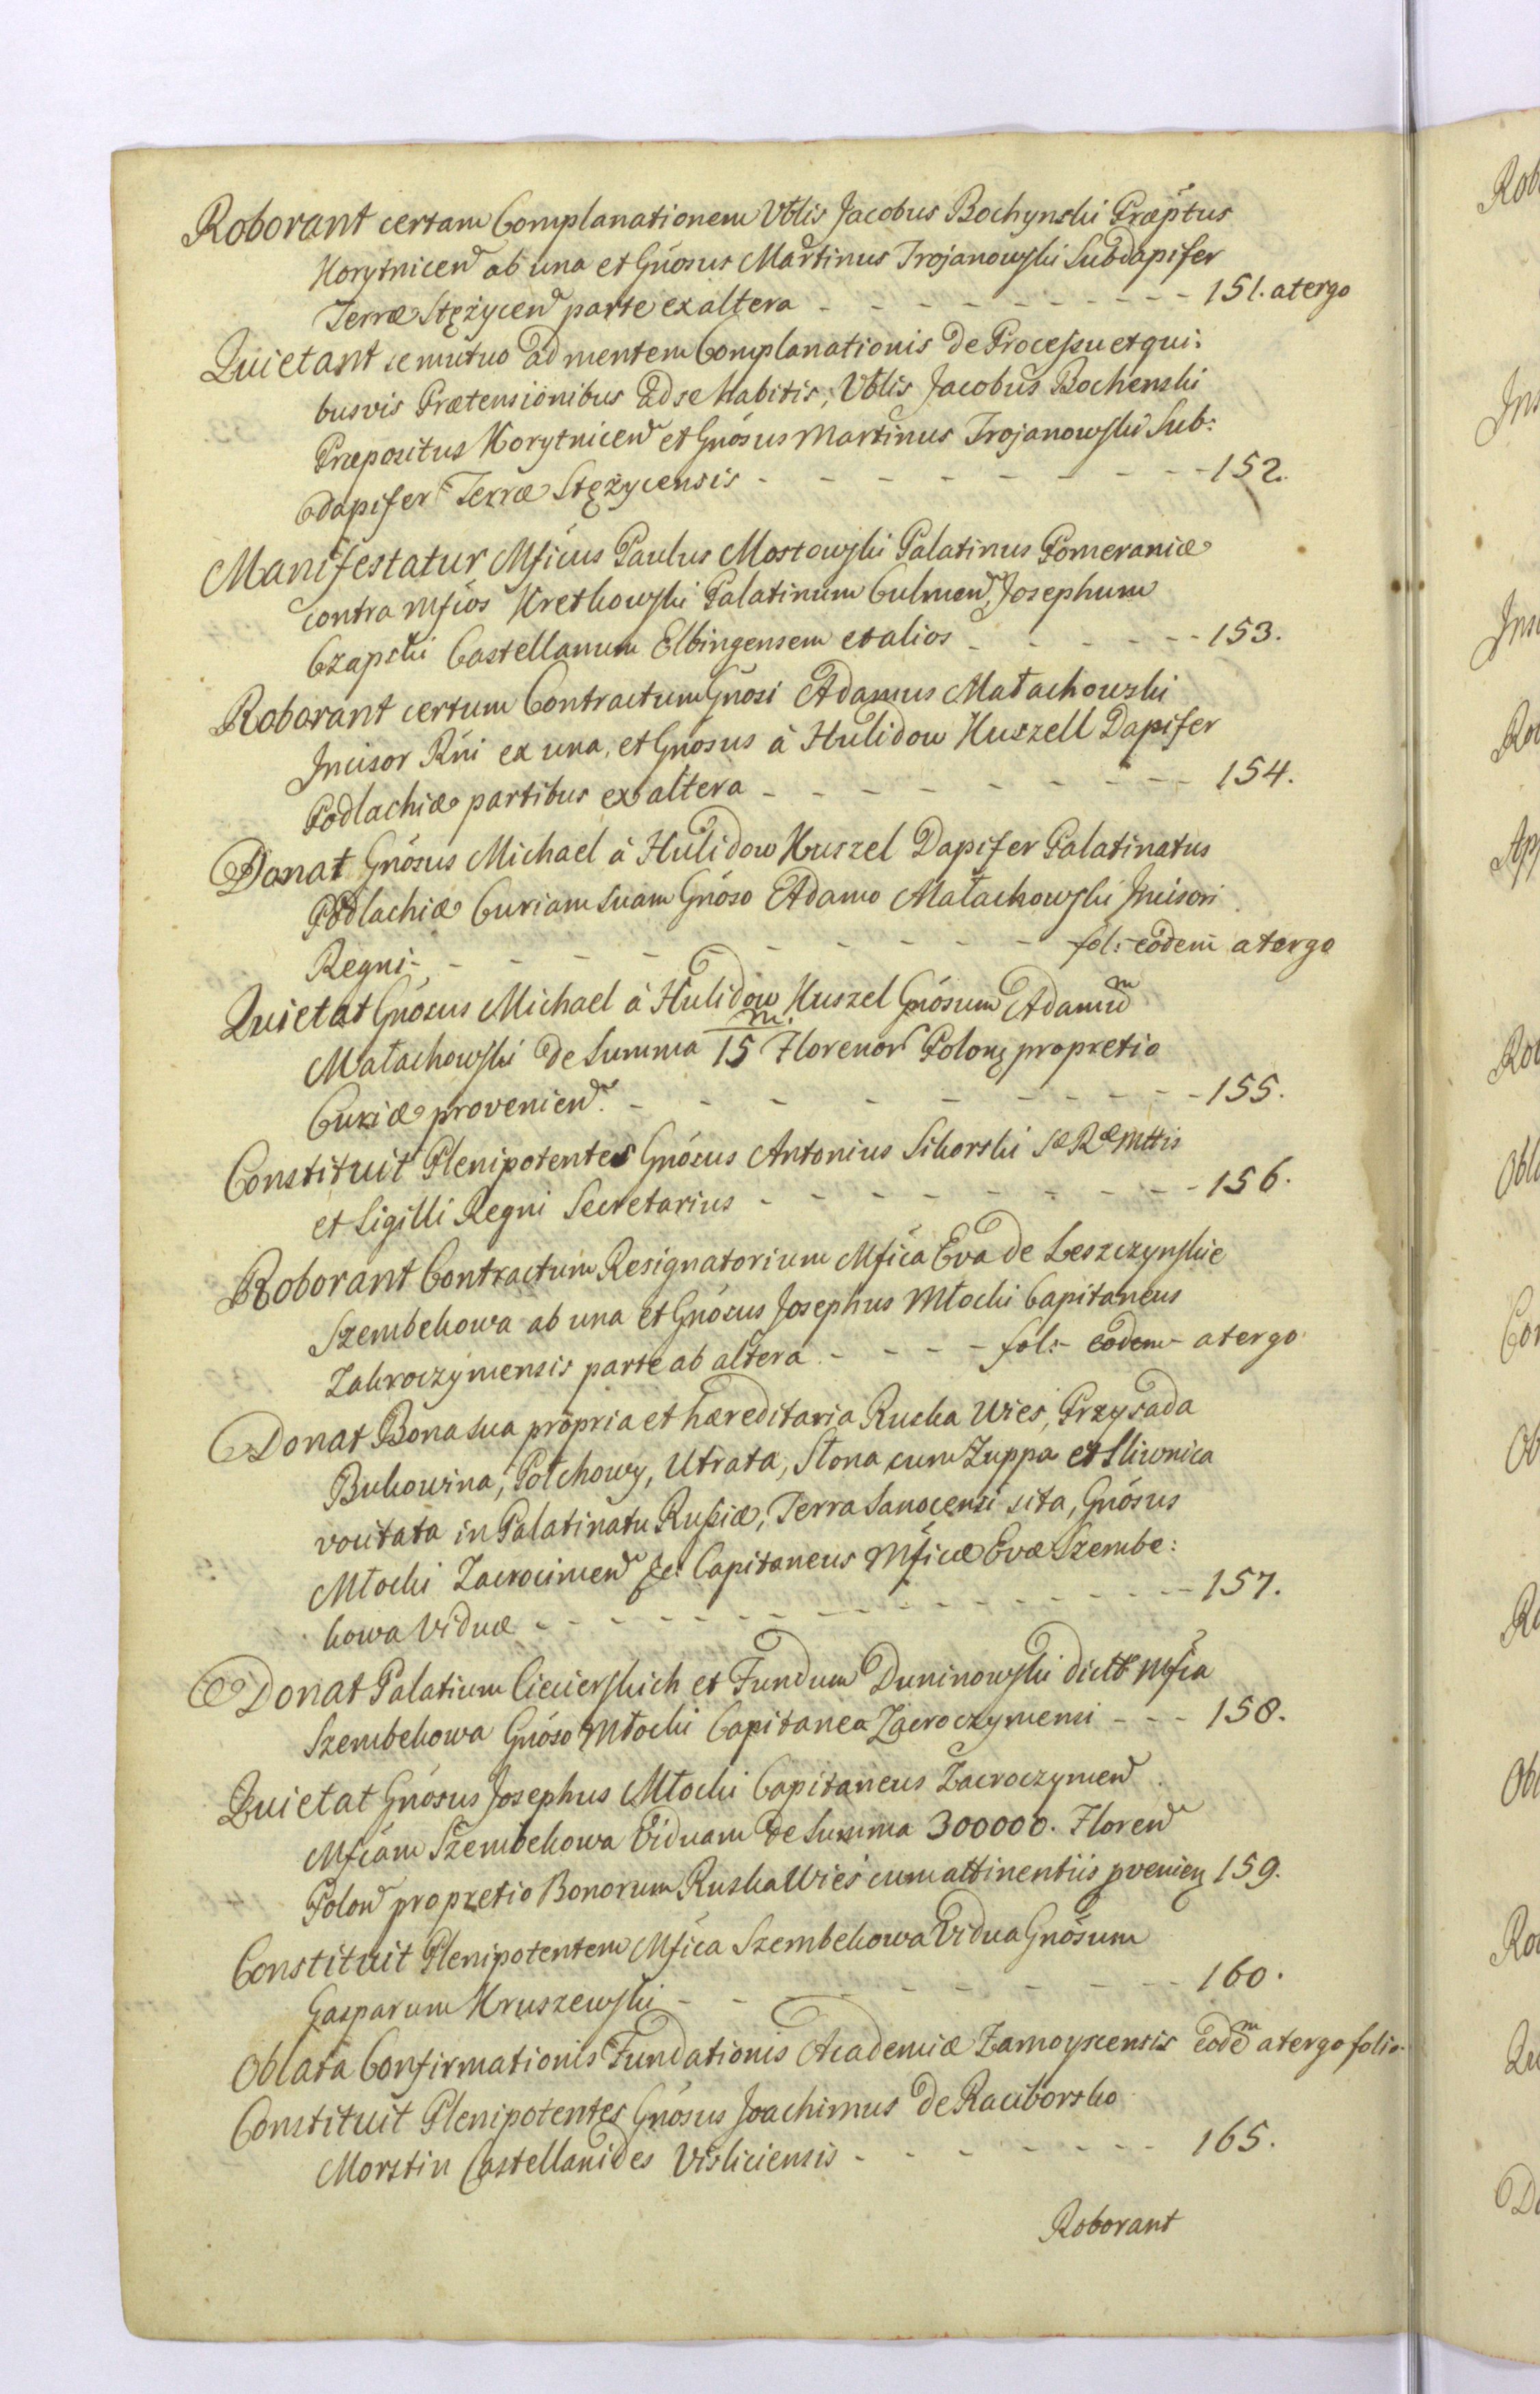 Roborant certam Complanationem Vblis Jacobus Bochynski Præptus
Korytnicen ab una et Gnosus Martinus Trojanowski Subdapifer
Terræ Stężycen parte ex altera - - - - - - - - - 151. atergo
Quietant se mutuo ad mentem Complanationis de Processu et qui:
busvis Prætensionibus ad se habitis, Vblis Jacobus Bochenski
Præpositus Korytnicen et Gnosus Martinus Trojanowski Sub:
dapifer Terræ Stężycensis - - - - - - - - 152.
Manifestatur Mficus Paulus Mostowski Palatinus Pomeraniæ
contra Mficos Kretkowski Palatinum Culmen, Josephum
Czapski Castellanum Elbingensem et alios - - - - - 153.
Roborant certum Contractum Gnosi Adamus Małachowski
Incisor Rni ex una, et Gnosus à Hulidow Kuszell Dapifer
Podlachiæ partibus ex altera - - - - - - - - 154.
Donat Gnosus Michael à Hulidow Kuszel Dapifer Palatinatus
Podlachiæ Curiam suam Gnoso Adamo Małachowski Incisori
Regni - - - - - - - - - fol: eodem atergo
Quietat Gnosus Michael à Hulidow Kuszel Gnosum Adamum
Małachowski de Summa 15 m. Florenor Polon pro pretio
Curiæ provenien. - - - - - - - - - 155.
Constituit Plenipotentes Gnosus Antonius Sikorski Sæ Ræ Mttis
et Sigilli Regni Secretarius - - - - - - - - 156.
Roborant Contractum Resignatorium Mfica Eva de Leszczynskie
Szembekowa ab una et Gnosus Josephus Młocki Capitaneus
Zakroczymensis parte ab altera - - - - fol: eodem atergo
Donat Bona sua propria et hæreditaria Ruska Wies, Przysada
Bukowina, Połchowy, Utrata, Słona cum Zuppa et Sliwnica
vocitata in Palatinatu Russiæ, Terra Sanocensi sita, Gnosus
Młocki Zacrocimen &c. Capitaneus Mficæ Evæ Szembe:
kowa Viduæ - - - - - - - - - - - - 157.
Donat Palatium Ciecierskich et Fundum Duninowski dict Mfica
Szembekowa Gnoso Młocki Capitaneo Zacroczymensi - - - 158.
Quietat Gnosus Josephus Młocki Capitaneus Zacroczymen
Mficam Szembekowa Viduam de Summa 300000. Floren
Polon pro pretio Bonorum Ruska Wies cum attinentiis provenien 159.
Constituit Plenipotentem Mfica Szembekowa Vidua Gnosum
Gasparum Kruszewski - - - - - - - - 160.
Oblata Confirmationis Fundationis Academiæ Zamoyscensis eodem atergo folio.
Constituit Plenipotentes Gnosus Joachimus de Raciborsko
Morstin Castellanides Visliciensis - - - - - - - 165.
Roborant